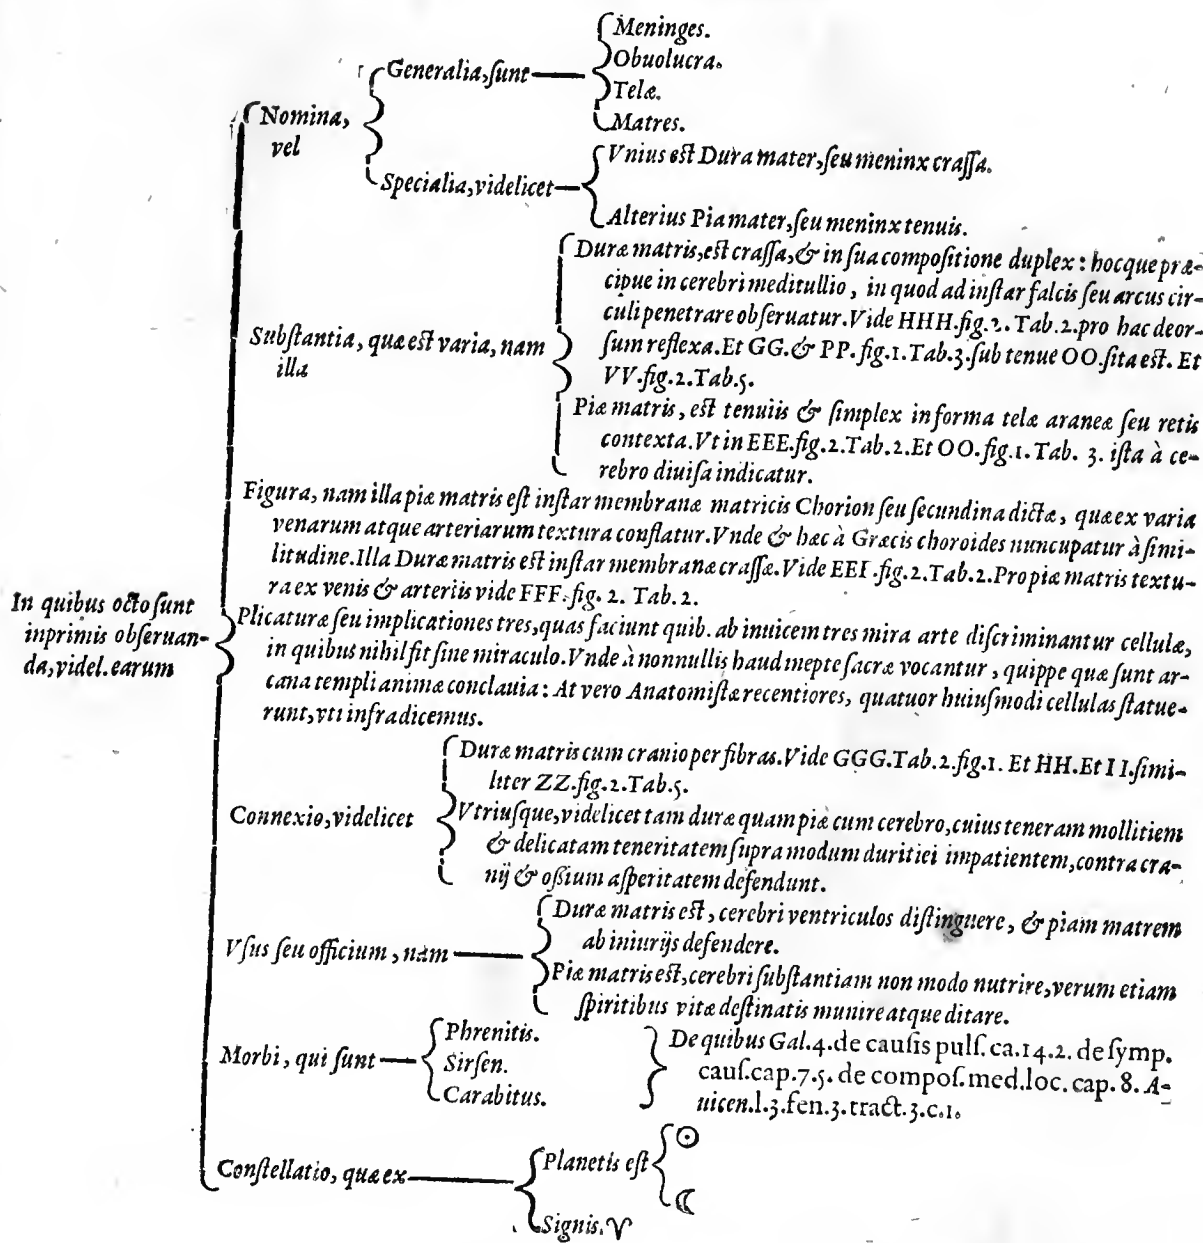 Meninges.
Obuolucra.
Telæ.
Matres.
Generalia, ſunt
Nomina,
vel
Specialia, videlicet
Vnius est Dura mater, ſeu meninx craſſa.
Alterius Pia mater, ſeu meninx tenuis.
Substantia, quæ est varia, nam
illa
Duræ matris, est craſſa, & in ſua compoſitione duplex: hocque præ-
cipue in cerebri meditullio, in quod ad inſtar falcis ſeu arcus cir-
culi penetrare obſeruatur. Vide HHH. fig. 2. Tab. 2. pro hac deor-
ſum reflexa. Et GG. & PP. fig. 1. Tab. 3. ſub tenue OO. ſita est. Et
VV. fig. 2. Tab. 5.
Piæ matris, est tenuiis & ſimplex in forma telæ araneæ ſeu retis
contexta. Vt in EEE. fig. 2. Tab. 2. Et OO. fig. 1. Tab. 3. iſta à ce-
rebro diuiſa indicatur.
Figura, nam illa piæ matris est inſtar membranæ matricis Chorion ſeu ſecundina dictæ, quæ ex varia
venarum atque arteriarum textura conflatur. Vnde & hæc à Græcis choroides nuncupatur à ſimi-
litudine. Illa Duræ matris est inſtar membranæ craſſæ. Vide EEI. fig. 2. Tab. 2. Pro piæ matris textu-
ra ex venis & arteriis vide FFF. fig. 2. Tab. 2.
In quibus octo ſunt
inprimis obſeruan-
da, videl. earum
Plicaturæ ſeu implicationes tres, quas faciunt quib. ab inuicem tres mira arte diſcriminantur cellulæ,
in quibus nihil fit ſine miraculo. Vnde à nonnullis haud inepte ſacræ vocantur, quippe quæ ſunt ar-
cana templi animæ conclauia: At vero Anatomiſtæ recentiores, quatuor huiuſmodi cellulas ſtatue-
runt, vti infra dicemus.
Connexio, videlicet
Duræ matris cum cranio per fibras. Vide GGG. Tab. 2. fig. 1. Et HH. Et II. ſimi-
liter ZZ. fig. 2. Tab. 5.
Vtriuſque, videlicet tam duræ quam piæ cum cerebro, cuius teneram mollitiem
& delicatam teneritatem ſupra modum duritiei impatientem, contra cra-
nij & oſſium aſperitatem defendunt.
Vſus ſeu officium, nam
Duræ matris est, cerebri ventriculos diſtinguere, & piam matrem
ab iniurijs defendere.
Piæ matris est, cerebri ſubſtantiam non modo nutrire, verum etiam
ſpiritibus vitæ deſtinatis munire atque ditare.
Morbi, qui ſunt
Phrenitis.
Sirſen.
Carabitus.
De quibus Gal. 4. de cauſis pulſ. ca. 14. 2. de ſymp.
cauſ. cap. 7. 5. de compoſ. med. loc. cap. 8. A-
uicen. l. 3. fen. 3. tract. 3. c. 1.
Conſtellatio, quæ ex
Planetis est
☉
☾
Signis. ♈